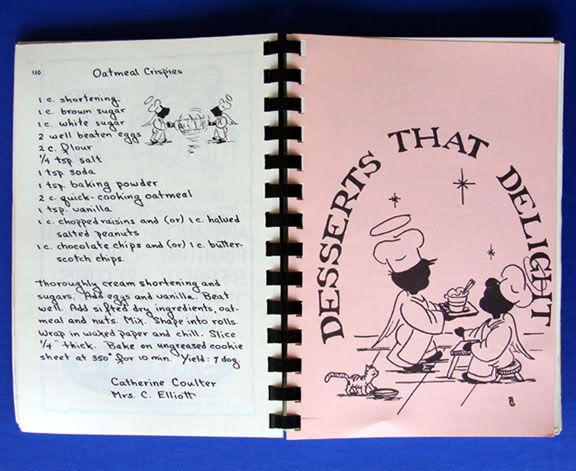 110
Oatmeal Crispies
1 c. shortening
1 c. brown sugar
1 c. white sugar
2 well beaten eggs
2 c. flour
1/4 tsp. salt
1 tsp. soda
1 tsp. baking powder
2 c. quick-cooking oatmeal
1 tsp. vanilla
1 c. chopped raisins and (or) 1 c. halved
salted peanuts
1 c. chocolate chips and (or) 1 c. butter-
scotch chips.
Thoroughly cream shortening and
sugars. Add eggs and vanilla. Beat
well. Add sifted dry ingredients, oat-
meal and nuts. Mix. Shape into rolls.
Wrap in waxed paper and chill. Slice
1/4" thick. Bake on ungreased cookie
sheet at 350° for 10 min. Yield: 7 dog.
Catherine Coulter
Mrs. C. Elliott
DESSERTS THAT DELIGHT